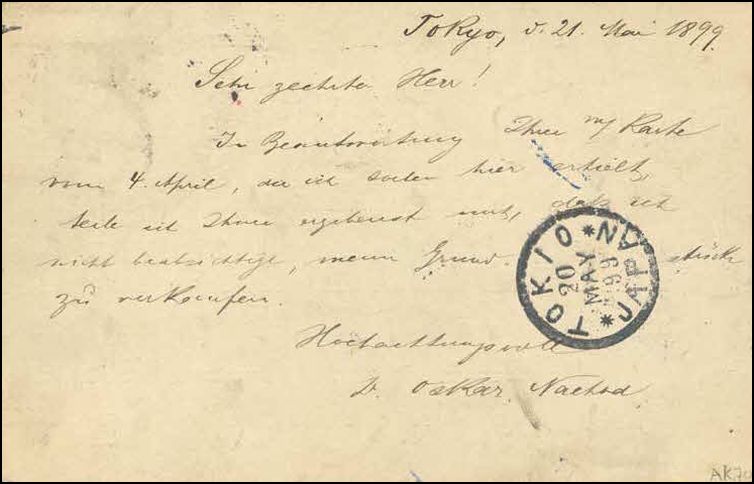 Tokyo, d. 21. Mai 1899.
Sehr geehrter Herr!
In Beantwortung Ihrer Karte
vom 4. April, die ich soeben hier erhielt,
teile ich Ihnen ergebenst mit, daß ich
nicht beabsichtige, mein Grundstück
zu verkaufen.
Hochachtungsvoll
Dr. Oskar Nachod.
TOKIO JAPAN
20 MAY 99